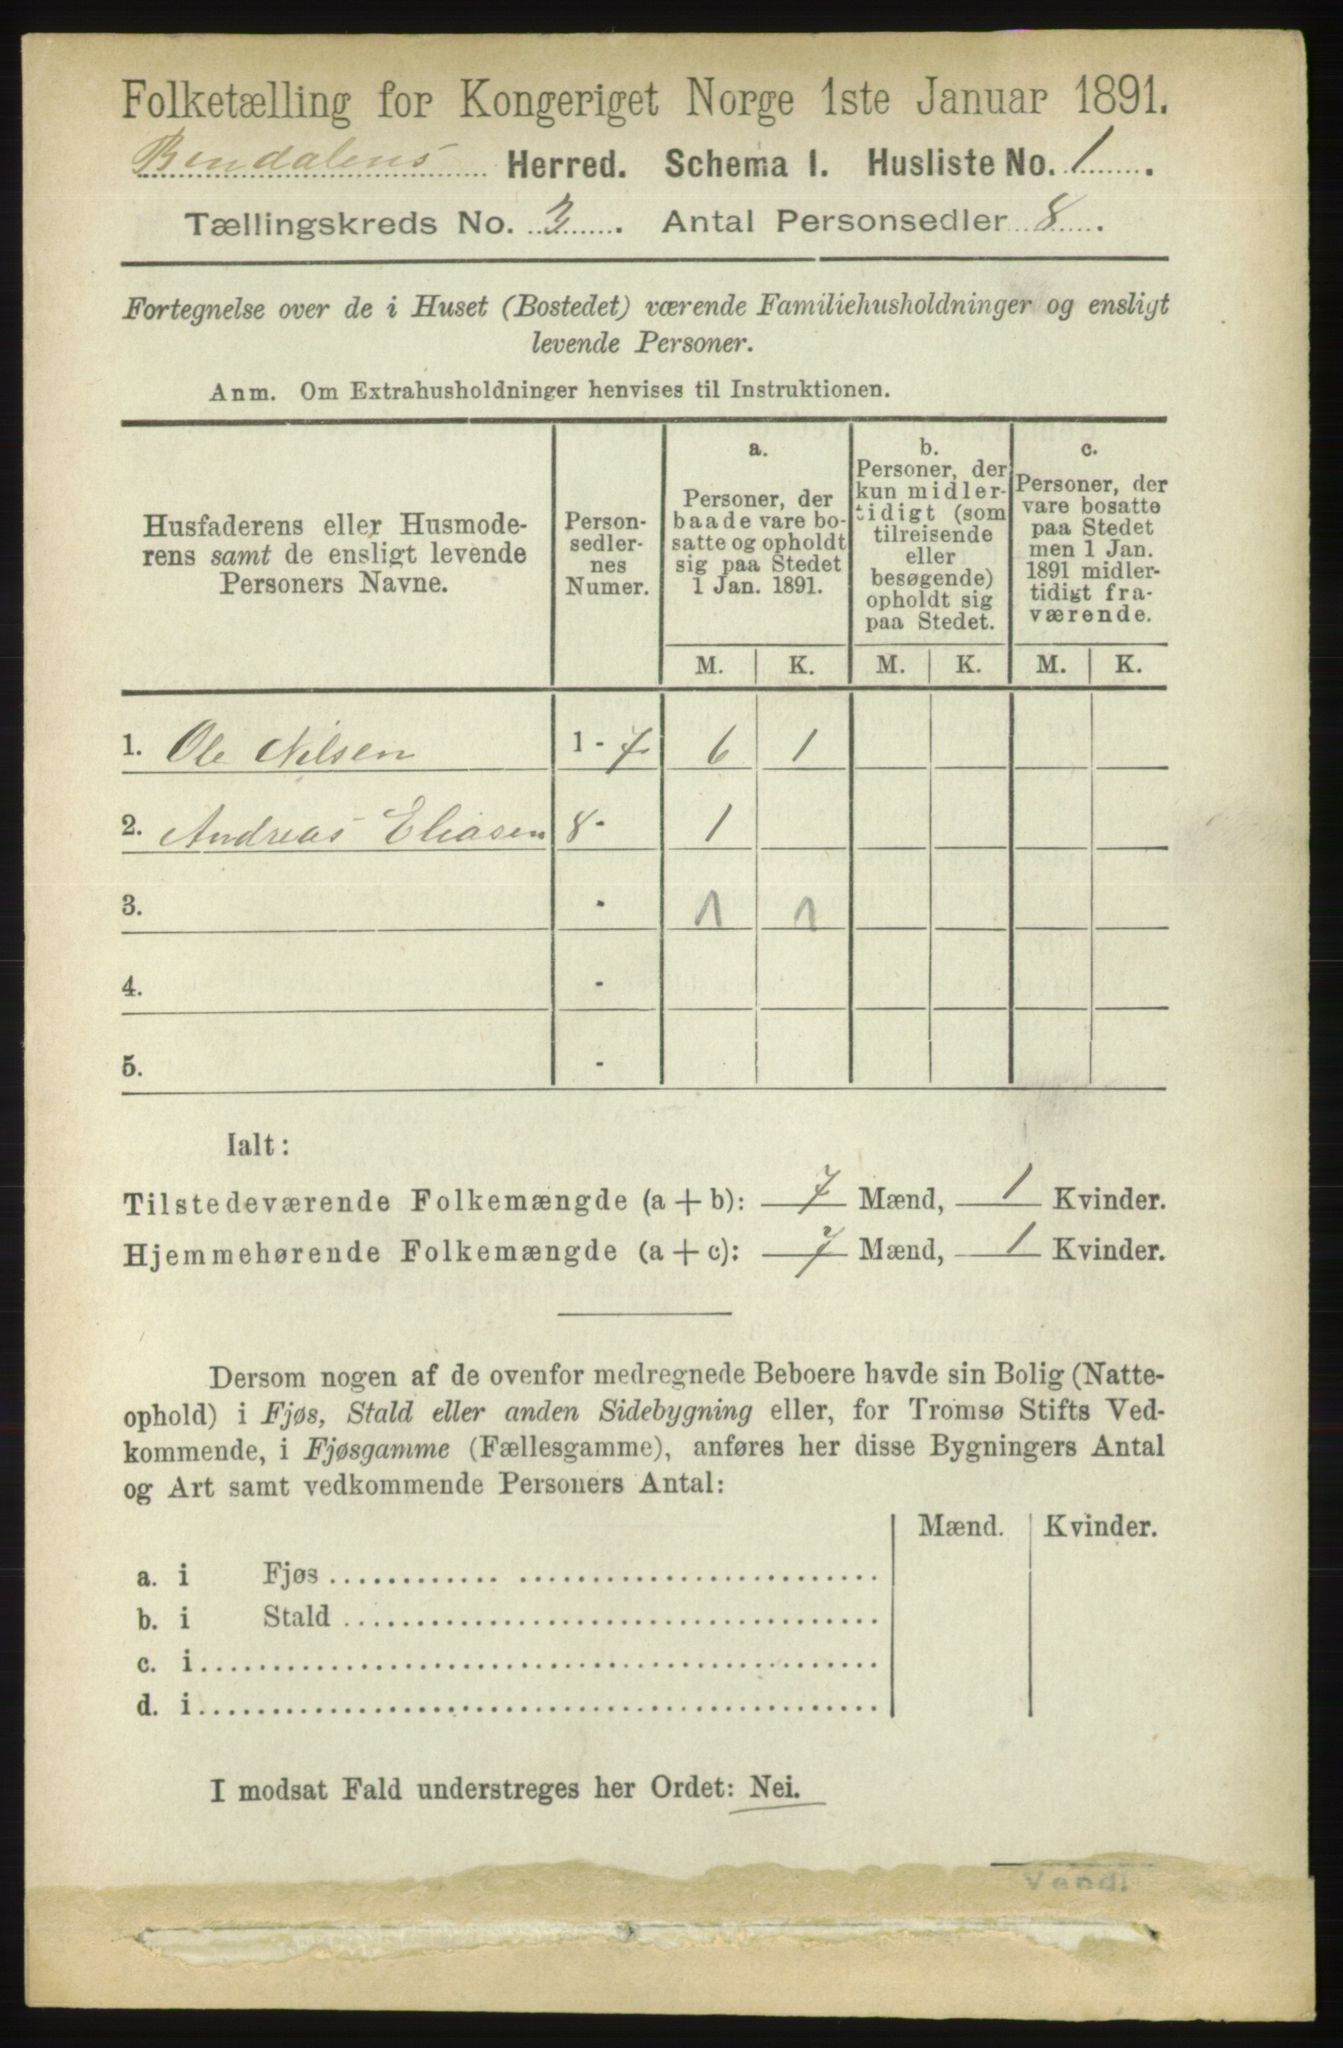 Folketælling for Kongeriget Norge 1ste Januar 1891.
Bindalens Herred. Schema I. Husliste No. 1.
Tællingskreds No. 3. Antal Personsedler 8.
Fortegnelse over de i Huset (Bostedet) værende Familiehusholdninger og ensligt
levende Personer.
Anm. Om Extrahusholdninger henvises til Instruktionen.
Husfaderens eller Husmode-
rens samt de ensligt levende
Personers Navne.
Person-
sedler-
nes
Numer.
a.
Personer, der
baade vare bo-
satte og opholdt
sig paa Stedet
1 Jan. 1891.
b.
Personer, der
kun midler-
tidigt (som
tilreisende
eller
besøgende)
opholdt sig
paa Stedet.
c.
Personer, der
vare bosatte
paa Stedet
men 1 Jan.
1891 midler-
tidigt fra-
værende.
M. K. M. K. M. K.
1. Ole Nilsen 1 - 7 6 1
2. Andreas Eliasen 8 - 1
3. - 1 1
4. -
5. -
Ialt:
Tilstedeværende Folkemængde (a + b): 7 Mænd, 1 Kvinder.
Hjemmehørende Folkemængde (a + c): 7 Mænd, 1 Kvinder.
Dersom nogen af de ovenfor medregnede Beboere havde sin Bolig (Natte-
ophold) i Fjøs, Stald eller anden Sidebygning eller, for Tromsø Stifts Ved-
kommende, i Fjøsgamme (Fællesgamme), anføres her disse Bygningers Antal
og Art samt vedkommende Personers Antal:
Mænd. Kvinder.
a. i Fjøs
b. i Stald
c. i
d. i
I modsat Fald understreges her Ordet: Nei.
Vend!